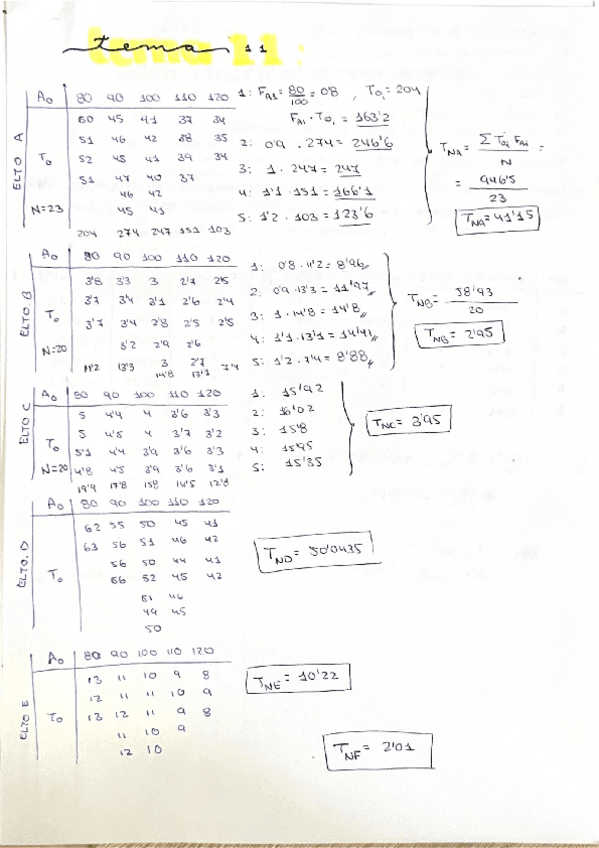 tema 11
ELTO A
A₀ 80 90 100 110 120
T₀
60 45 41 37 34
51 46 42 38 35
52 45 41 39 34
51 47 40 37
46 42
45 41
N=23
204 274 247 151 103
1: F_A1 = 80/100 = 0'8 , T₀₁ = 204
F_A1 · T₀₁ = 163'2
2: 0'9 . 274 = 246'6
3: 1 · 247 = 247
4: 1'1 · 151 = 166'1
5: 1'2 · 103 = 123'6
T_NA = Σ T₀i F_Ai / N =
= 946'5 / 23
T_NA = 41'15
ELTO B
A₀ 80 90 100 110 120
T₀
3'8 3'3 3 2'7 2'5
3'7 3'4 3'1 2'6 2'4
3'7 3'4 2'8 2'5 2'5
3'2 2'9 2'6
3 2'7
N=20
11'2 13'3 14'8 13'1 7'4
1: 0'8 · 11'2 = 8'96
2: 0'9 · 13'3 = 11'97
3: 1 · 14'8 = 14'8
4: 1'1 · 13'1 = 14'41
5: 1'2 · 7'4 = 8'88
T_NB = 58'93 / 20
T_NB = 2'95
ELTO C
A₀ 80 90 100 110 120
T₀
5 4'4 4 3'6 3'3
5 4'5 4 3'7 3'2
5'1 4'4 3'9 3'6 3'3
N=20 4'8 4'5 3'9 3'6 3'1
19'9 17'8 15'8 14'5 12'8
1: 15'92
2: 16'02
3: 15'8
4: 15'95
5: 15'35
T_NC = 3'95
ELTO. D
A₀ 80 90 100 110 120
T₀
62 55 50 45 41
63 56 51 46 42
56 50 44 41
56 52 45 42
51 46
49 45
50
T_ND = 50'0435
ELTO E
A₀ 80 90 100 110 120
T₀
13 11 10 9 8
12 11 11 10 9
13 12 11 9 8
11 10 9
12 10
T_NE = 10'22
T_NF = 2'01